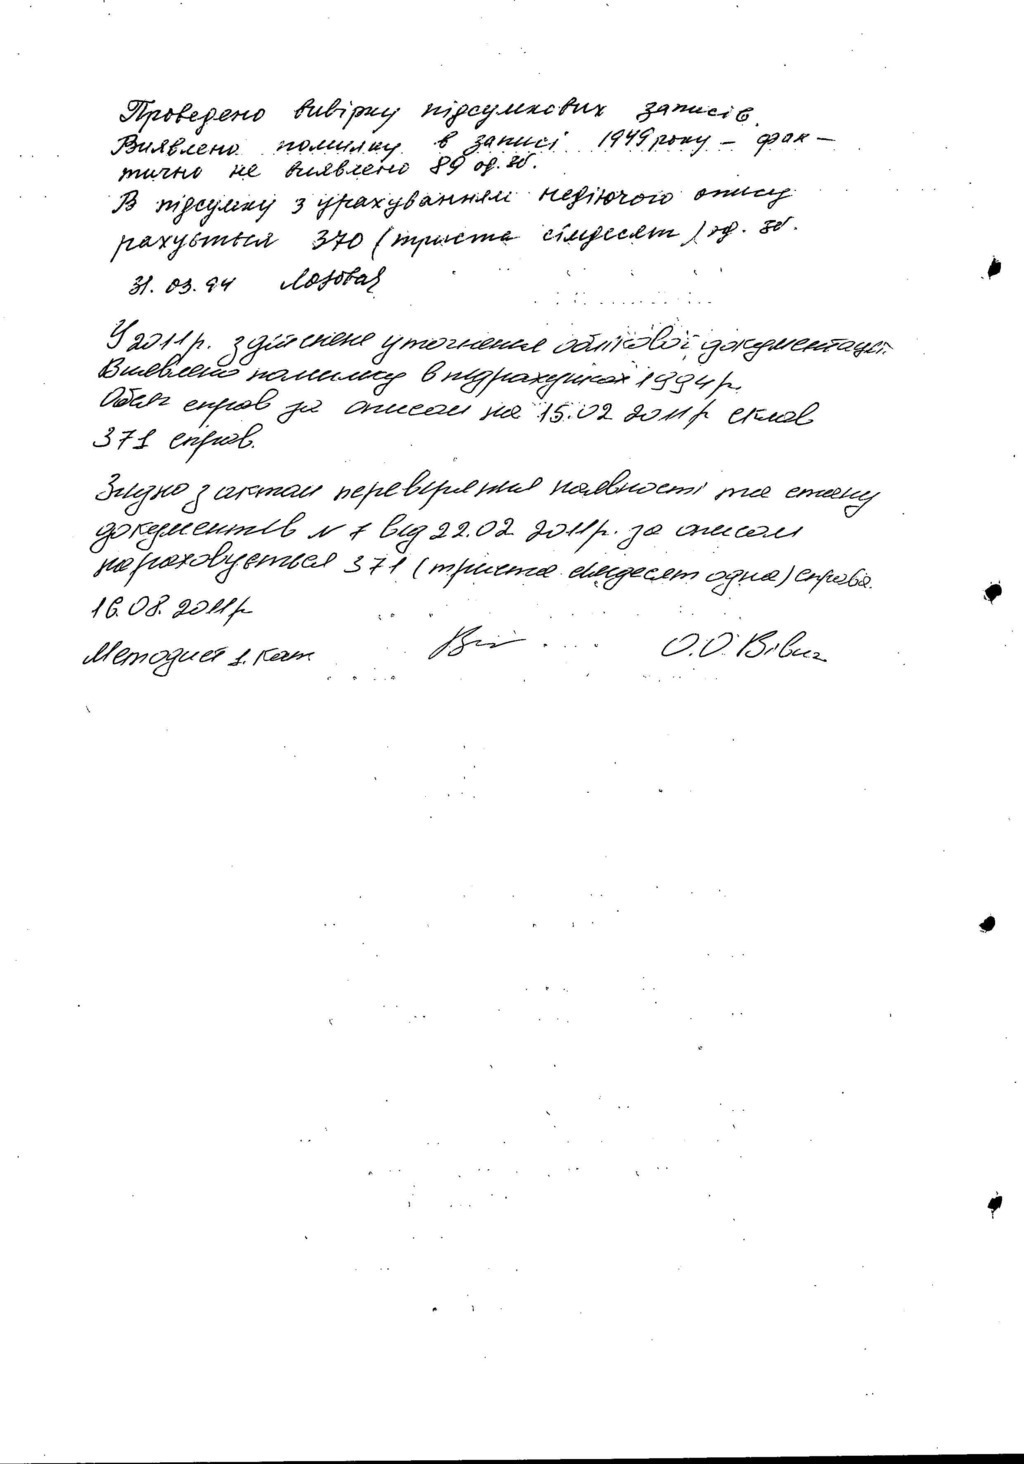 Проведено вивірку підсумкових записів.
Виявлено помилку в записі 1949 року – фак–
тично не виявлено 89 од. зб.
В підсумку з урахуванням недіючого опису
рахується 370 (триста сімдесят) од. зб.
31. 03. 94 Лозовая
У 2011р. здійснене уточнення облікової документації.
Виявлено помилку в підрахунках 1994р.
Обсяг справ за описом на 15.02 2011р склав
371 справ.
Згідно з актом перевіряння наявності та стану
документів № 7 від 22.02. 2011р. за описом
нараховується 371 (триста сімдесят одна) справа.
16.08. 2011р
Методист 1. кат О.О.